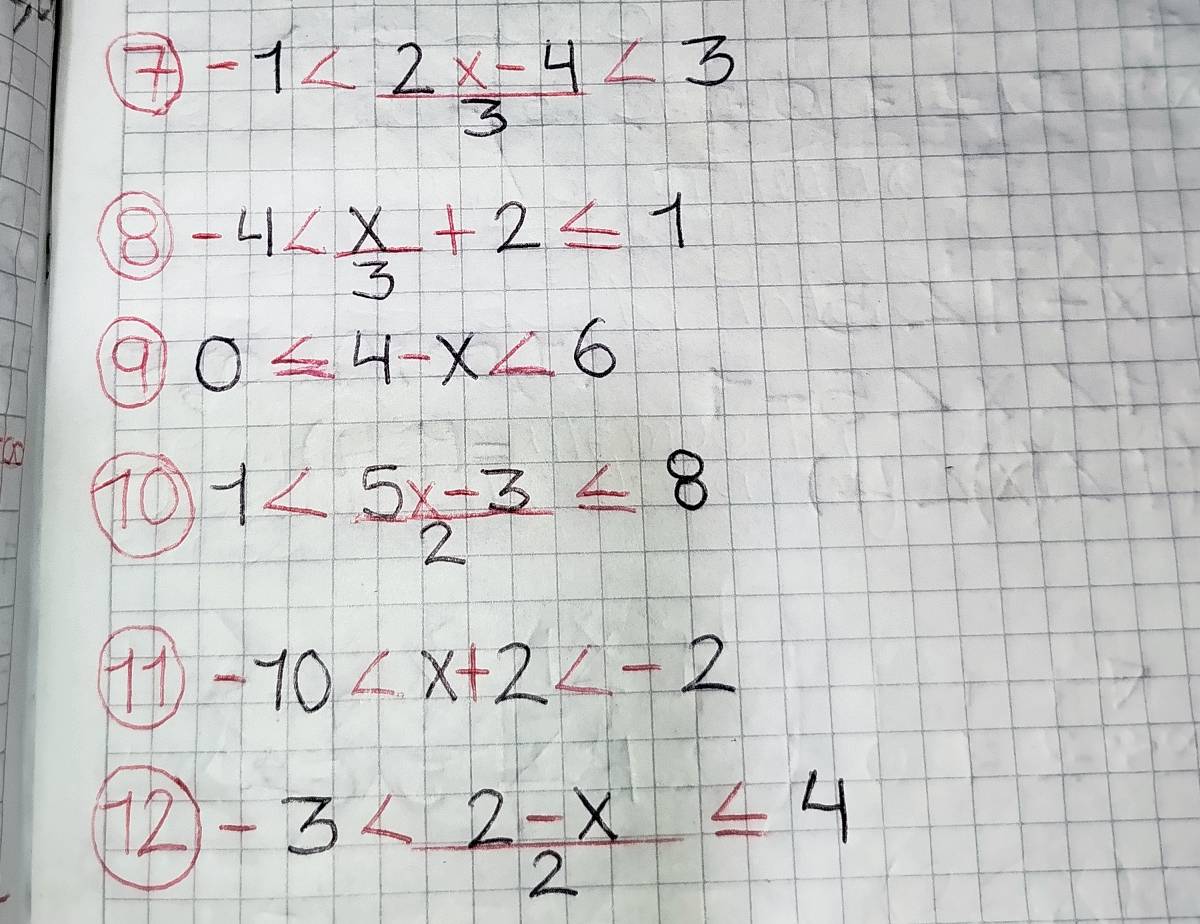 ⑦ -1 < (2x-4)/3 < 3
⑧ -4 < x/3 + 2 ≤ 1
⑨ 0 ≤ 4-x < 6
⑩ 1 < (5x-3)/2 ≤ 8
⑪ -10 < x+2 < -2
⑫ -3 < (2-x)/2 ≤ 4